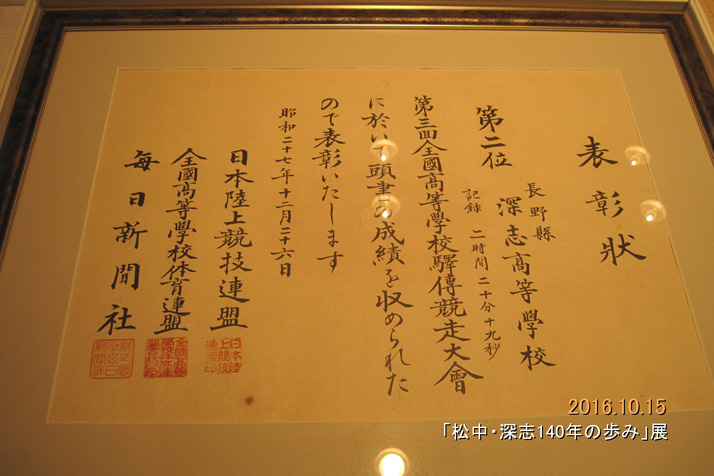 表彰狀
長野縣
深志高等學校
第二位
記録 二時間二十分十九秒
第三回全國高等學校驛傳競走大會
に於いて頭書の成績を収められた
ので表彰いたします
昭和二十七年十二月二十六日
日本陸上競技連盟
全國高等學校体育連盟
每日新聞社
2016.10.15
「松中・深志140年の歩み」展